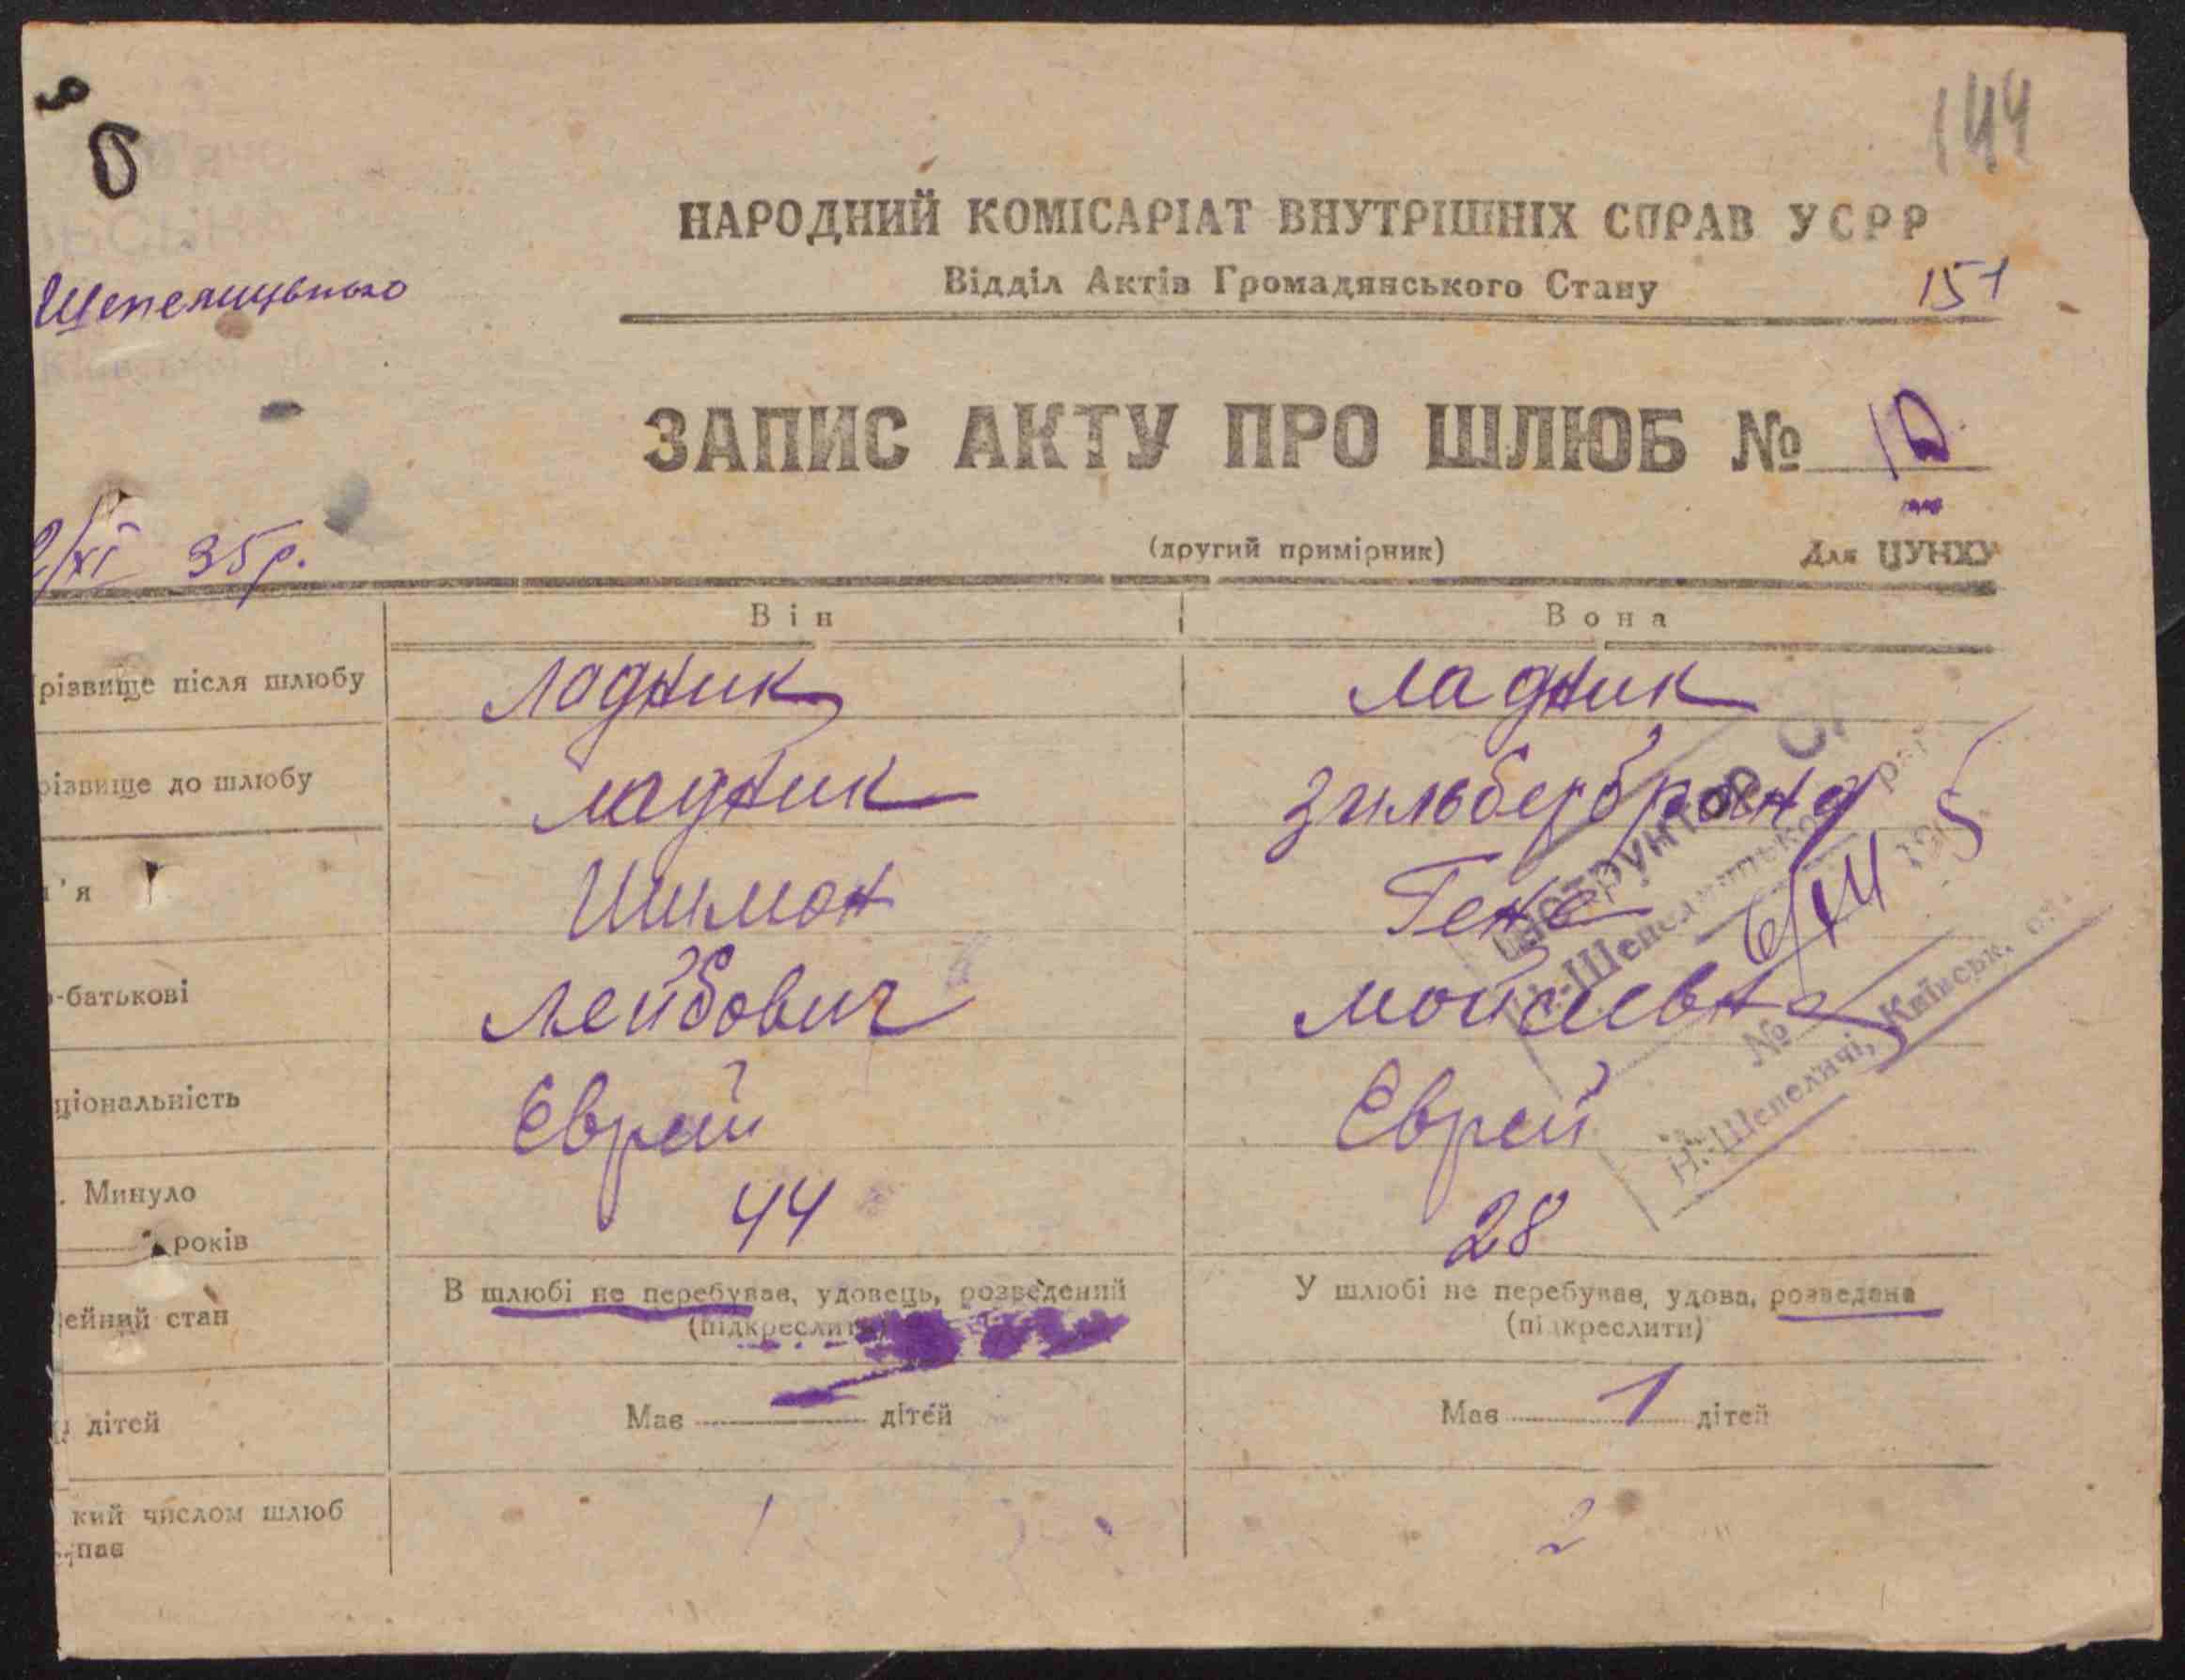 144
НАРОДНИЙ КОМІСАРІАТ ВНУТРІШНІХ СПРАВ УСРР
Відділ Актів Громадянського Стану
151
Шепелицького
ЗАПИС АКТУ ПРО ШЛЮБ № 10
(другий примірник)
Для ЦУНХУ
2/XI 35р.
Він Вона
різвище після шлюбу Ладник Ладник
різвище до шлюбу Ладник Зильбербранд
'я Шимон Геня
-батькові Лейбович Мойсаевна
ціональність Єврей Єврей
Минуло
років 44 28
ейний стан В шлюбі не перебував, удовець, розведений У шлюбі не перебував, удова, розведена
(підкреслити) (підкреслити)
дітей Має — дітей Має 1 дітей
кий числом шлюб 1 2
пає
№
Н.-Шепеличі, Київськ.